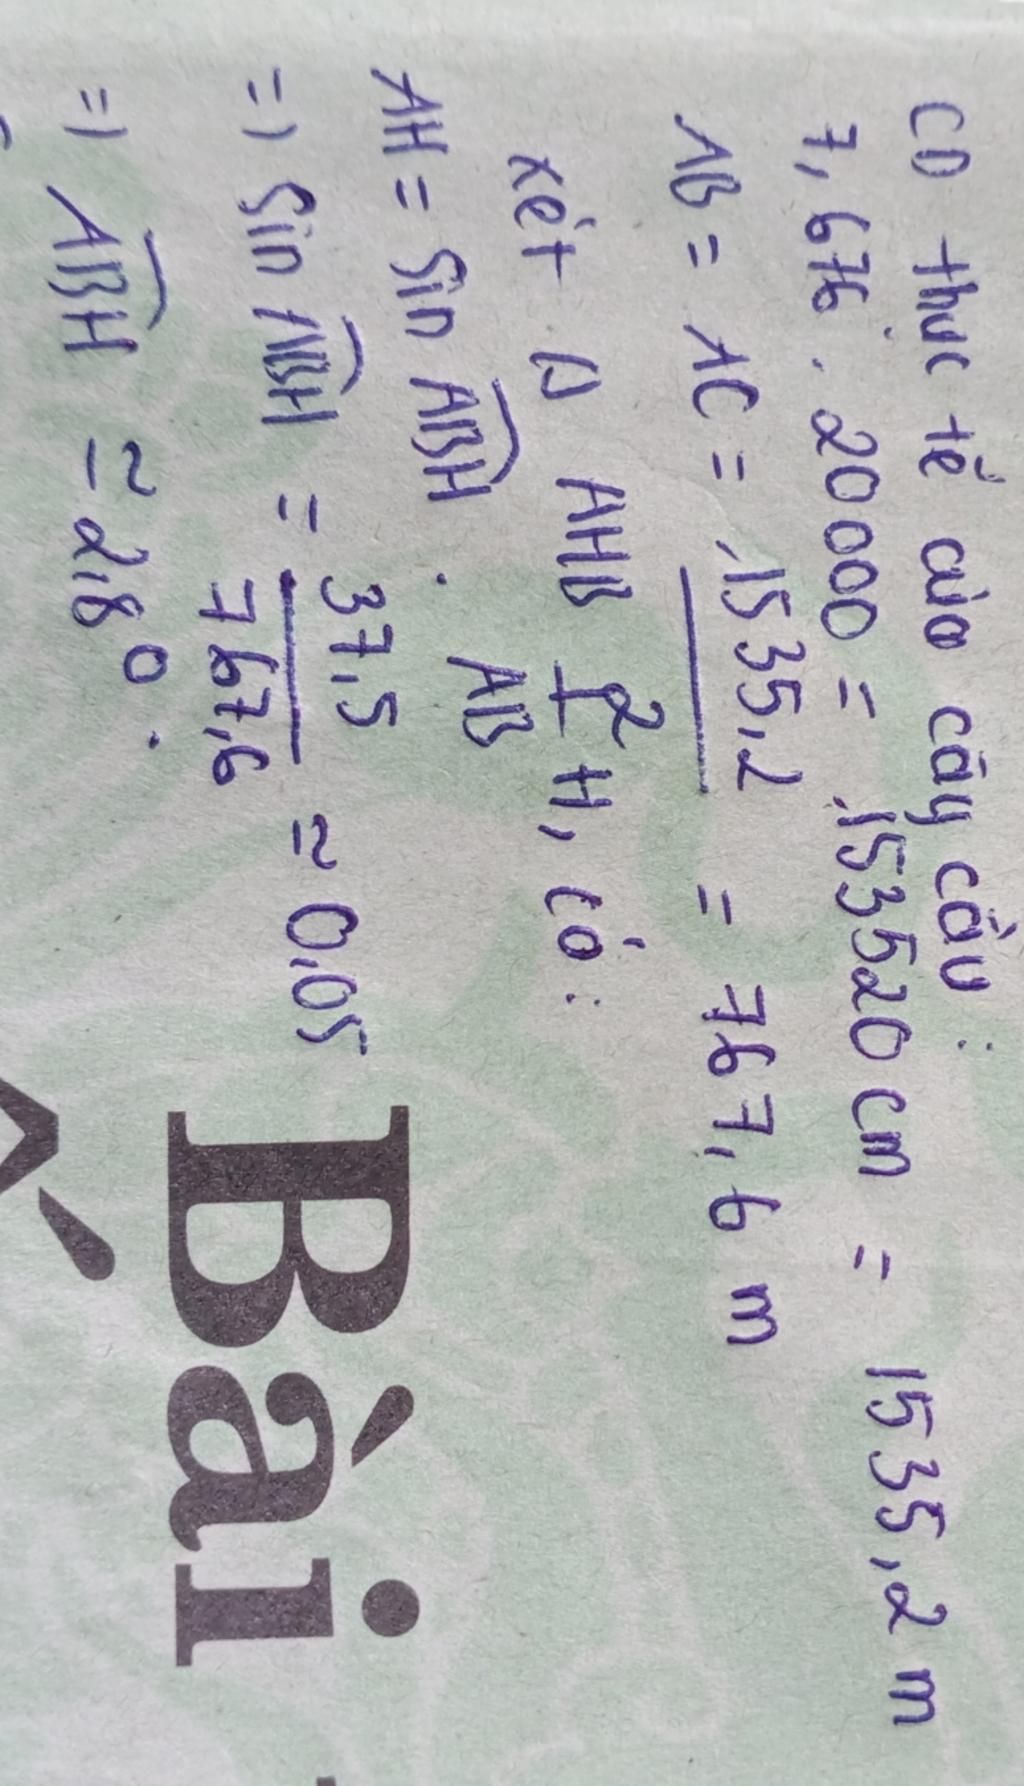 CD thực tế của cây cầu:
7,676 . 20000 = 153520 cm = 1535,2 m
AB = AC = 1535,2 / 2 = 767,6 m
xét △ AHB ⊥ H, có:
AH = sin ABH . AB
=) sin ABH = 37,5 / 767,6 ≈ 0,05
=) ABH ≃ 2,8°.
Bài